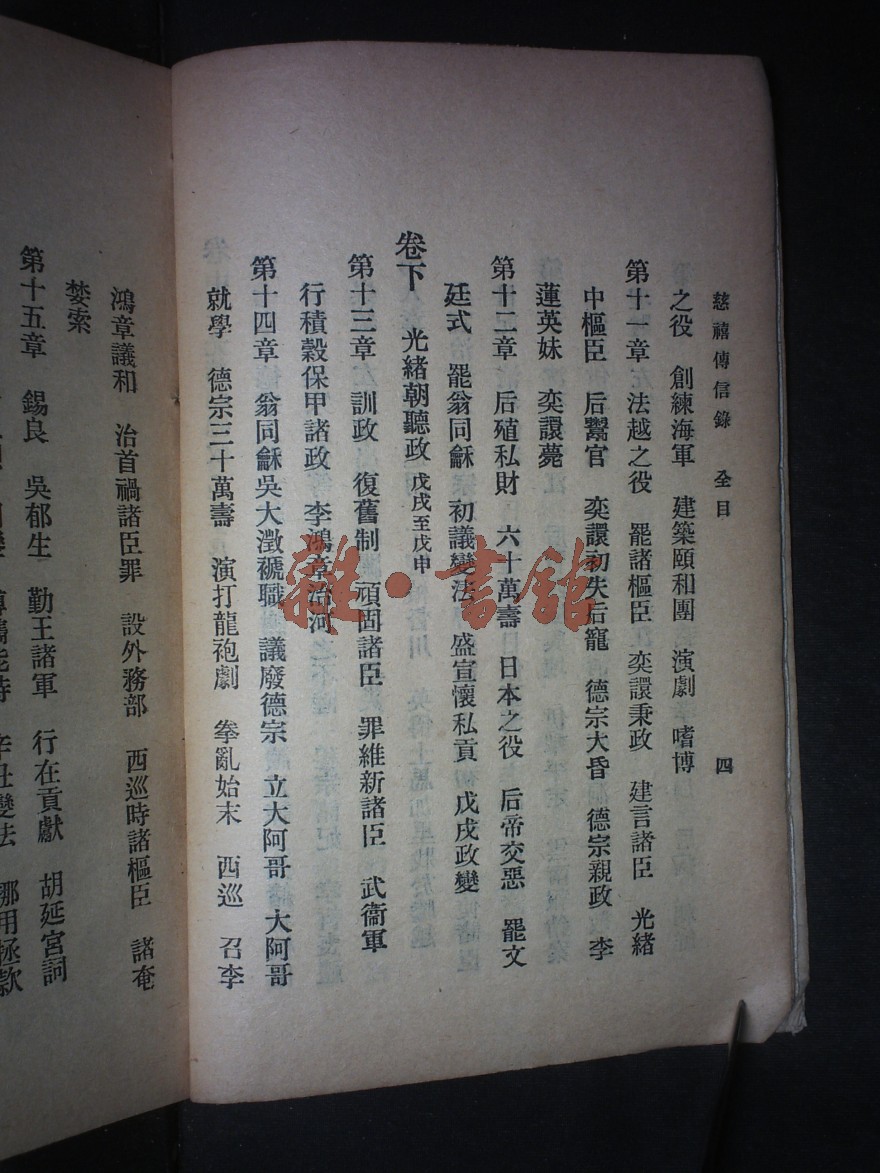 慈禧傳信錄 全目 四
之役 創練海軍 建築頤和園 演劇 嗜博
第十一章 法越之役 罷諸樞臣 奕譞秉政 建言諸臣 光緒
中樞臣 后鬻官 奕譞初失后寵 德宗大昏 德宗親政 李
蓮英妹 奕譞薨
第十二章 后殖私財 六十萬壽 日本之役 后帝交惡 罷文
廷式 罷翁同龢 初議變法 盛宣懷私貢 戊戌政變
卷下 光緒朝聽政 戊戌至戊申
第十三章 訓政 復舊制 頑固諸臣 罪維新諸臣 武衞軍
行積穀保甲諸政 李鴻章治河
第十四章 翁同龢吳大澂褫職 議廢德宗 立大阿哥 大阿哥
就學 德宗三十萬壽 演打龍袍劇 拳亂始末 西巡 召李
鴻章議和 治首禍諸臣罪 設外務部 西巡時諸樞臣 諸奄
婪索
第十五章 錫良 吳郁生 勤王諸軍 行在貢獻 胡延宮詞
辛丑變法 挪用拯款
雜·書館